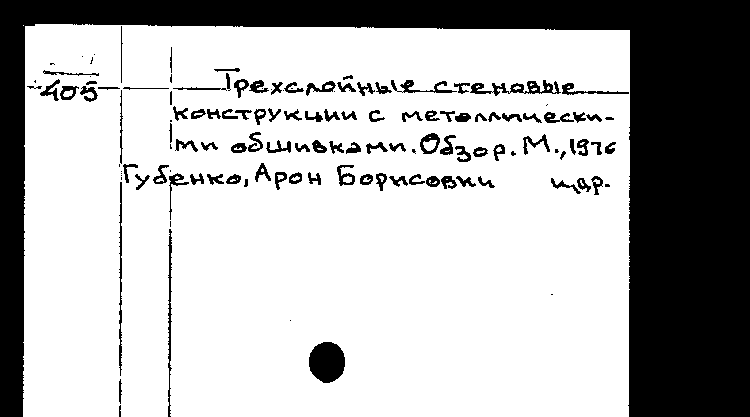 405
Трехслойные стеновые
конструкции с металлически-
ми обшивками. Обзор. М., 1976
Губенко, Арон Борисович